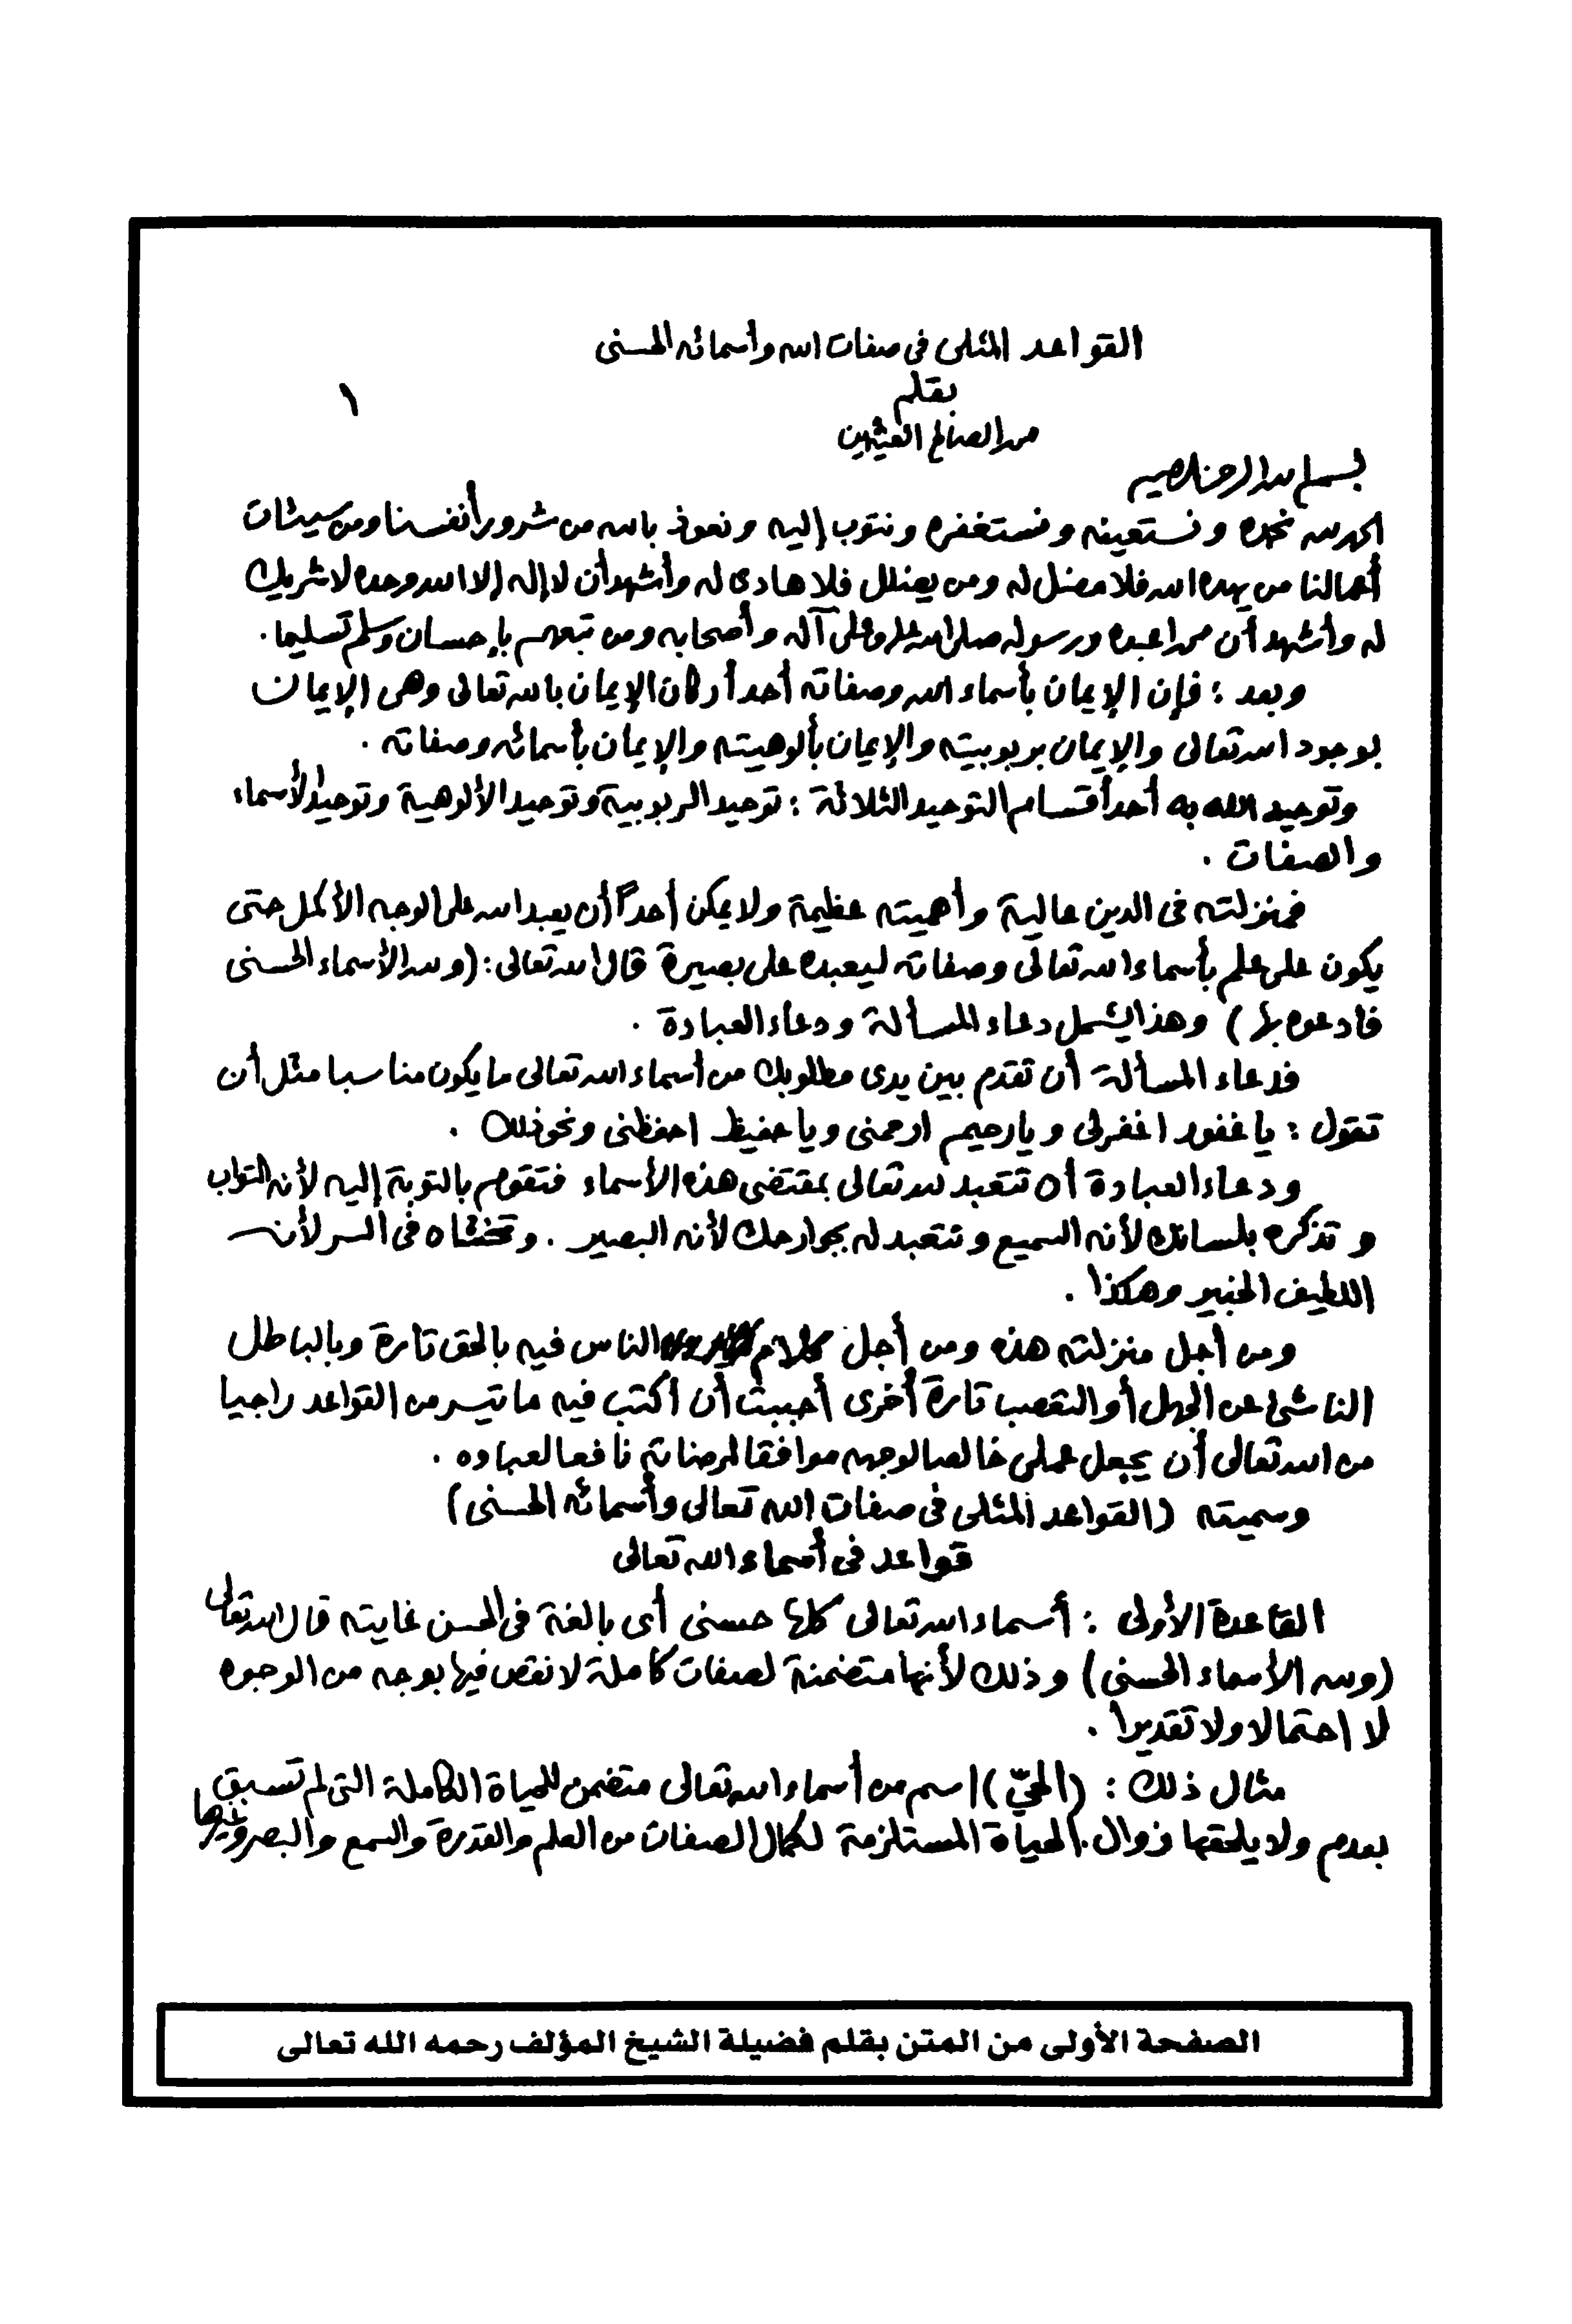 القواعد المثلى في صفات الله وأسمائه الحسنى
بقلم
١
محمد الصالح العثيمين
بسم الله الرحمن الرحيم
الحمد لله نحمده ونستعينه ونستغفره ونتوب إليه ونعوذ بالله من شرور أنفسنا ومن سيئات
أعمالنا من يهده الله فلا مضل له ومن يضلل فلا هادى له وأشهد أن لا إله إلا الله وحده لا شريك
له وأشهد أن محمدا عبده ورسوله صلى الله عليه وعلى آله وأصحابه ومن تبعهم بإحسان وسلم تسليما .
وبعد : فإن الإيمان بأسماء الله وصفاته أحد أركان الإيمان بالله تعالى وهى الإيمان
بوجود الله تعالى والإيمان بربوبيته والإيمان بألوهيته والإيمان بأسمائه وصفاته .
وتوحيد الله به أحد أقسام التوحيد الثلاثة : توحيد الربوبية وتوحيد الألوهية وتوحيد الأسماء
والصفات .
فمنزلته في الدين عالية وأهميته عظيمة ولا يمكن أحداً أن يعبد الله على الوجه الأكمل حتى
يكون على علم بأسماء الله تعالى وصفاته ليعبده على بصيرة قال الله تعالى : (ولله الأسماء الحسنى
فادعوه بها) وهذا يشمل دعاء المسألة ودعاء العبادة .
فدعاء المسألة أن تقدم بين يدى مطلوبك من أسماء الله تعالى ما يكون مناسبا مثل أن
تقول : يا غفور اغفر لى ويا رحيم ارحمنى ويا حفيظ احفظنى ونحو ذلك .
ودعاء العبادة أن تتعبد لله تعالى بمقتضى هذه الأسماء فتقوم بالتوبة إليه لأنه التواب
وتذكره بلسانك لأنه السميع وتتعبد له بجوارحك لأنه البصير . وتخشاه في السر لأنه
اللطيف الخبير وهكذا .
ومن أجل منزلته هذه ومن أجل كلام الناس فيه بالحق تارة وبالباطل
الناشئ عن الجهل أو التعصب تارة أخرى أحببت أن أكتب فيه ما تيسر من القواعد راجيا
من الله تعالى أن يجعل عملى خالصا لوجهه موافقا لمرضاته نافعا لعباده .
وسميته (القواعد المثلى في صفات الله تعالى وأسمائه الحسنى)
قواعد في أسماء الله تعالى
القاعدة الأولى : أسماء الله تعالى كلها حسنى أى بالغة في الحسن غايته قال الله تعالى
(ولله الأسماء الحسنى) وذلك لأنها متضمنة لصفات كاملة لا نقص فيها بوجه من الوجوه
لا احتمالا ولا تقديرا .
مثال ذلك : (الحيّ) اسم من أسماء الله تعالى متضمن للحياة الكاملة التى لم تسبق
بعدم ولا يلحقها زوال . الحياة المستلزمة لكمال الصفات من العلم والقدرة والسمع والبصر وغيرها
الصفحة الأولى من المتن بقلم فضيلة الشيخ المؤلف رحمه الله تعالى